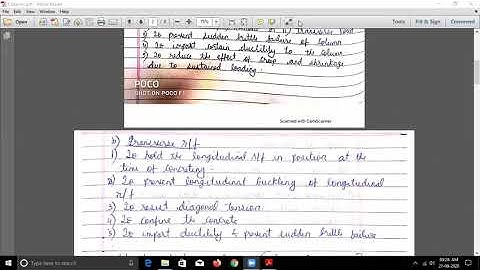 3) To prevent sudden brittle failure of column
4) To impart certain ductility to the column
5) To reduce the effect of creep and shrinkage
due to sustained loading.
POCO
SHOT ON POCO F1
Scanned with CamScanner
b) Transverse r/f
1) To hold the longitudinal r/f in position at the
time of concreting.
2) To prevent longitudinal buckling of longitudinal
r/f
3) To resist diagonal tension
4) To confine the concrete
5) To impart ductility & prevent sudden brittle failure
Tools
Fill & Sign
Comment
75%